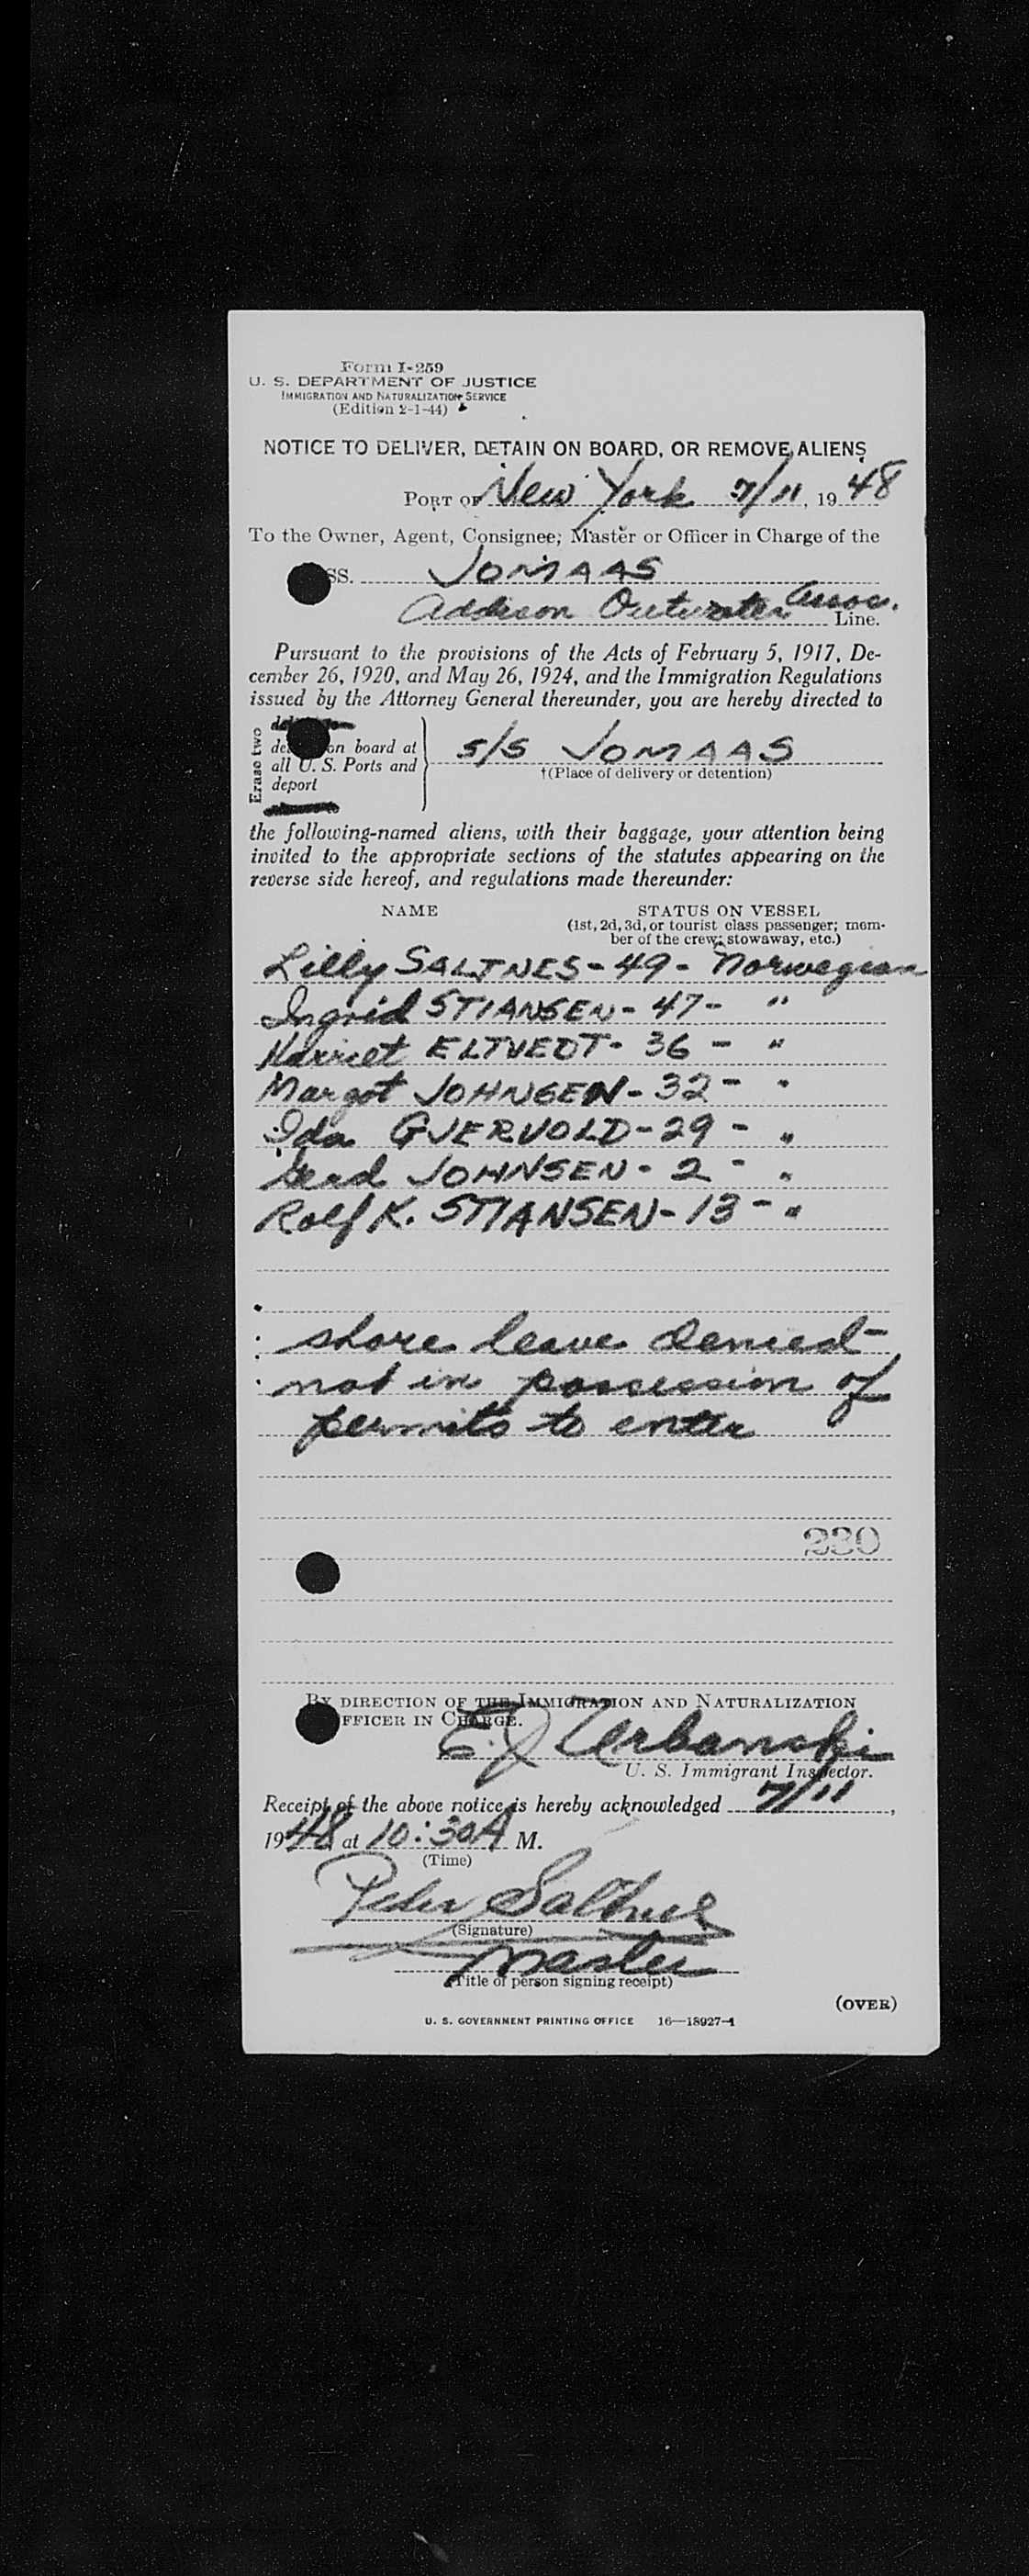 Form I-259
U. S. DEPARTMENT OF JUSTICE
IMMIGRATION AND NATURALIZATION SERVICE
(Edition 2-1-44)
NOTICE TO DELIVER, DETAIN ON BOARD, OR REMOVE ALIENS
PORT OF New York 7/11, 1948
To the Owner, Agent, Consignee, Master or Officer in Charge of the
SS. JOMAAS
Addison Outwater Assoc. Line.
Pursuant to the provisions of the Acts of February 5, 1917, De-
cember 26, 1920, and May 26, 1924, and the Immigration Regulations
issued by the Attorney General thereunder, you are hereby directed to
Erase two
on board at
all U. S. Ports and
deport
S/S JOMAAS
†(Place of delivery or detention)
the following-named aliens, with their baggage, your attention being
invited to the appropriate sections of the statutes appearing on the
reverse side hereof, and regulations made thereunder:
NAME STATUS ON VESSEL
(1st, 2d, 3d, or tourist class passenger; mem-
ber of the crew; stowaway, etc.)
Lilly SALTNES - 49 - Norwegian
Ingrid STIANSEN - 47 - "
Harriet ELTVEDT - 36 - "
Margot JOHNSEN - 32 - "
Ida GJERVOLD - 29 - "
Gerd JOHNSEN - 2 - "
Rolf K. STIANSEN - 13 - "
shore leave denied -
not in possession of
permits to enter
230
BY DIRECTION OF THE IMMIGRATION AND NATURALIZATION
OFFICER IN CHARGE.
E. J. Urbanski
U. S. Immigrant Inspector.
Receipt of the above notice is hereby acknowledged 7/11,
1948 at 10:30 A M.
(Time)
Peder Saltnes
(Signature)
Master
(Title of person signing receipt)
(OVER)
U. S. GOVERNMENT PRINTING OFFICE 16—18927-1